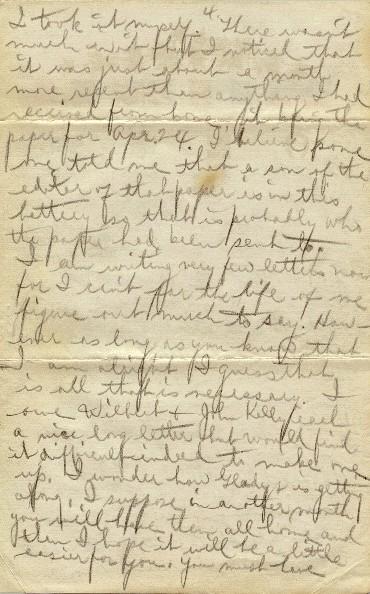 4
I took it myself. There wasn't
much in it but I noticed that
it was just about a month
more recent than anything I had
received from home, it being the
paper for Apr. 24. I believe some
one told me that a son of the
editor of that paper is in this
battery so that is probably who
the paper had been sent to.
I am writing very few letters now
for I can't for the life of me
figure out much to say. How-
ever as long as you know that
I am alright I guess that
is all that is necessary. I
owe Wilbert & John Kelly each
a nice long letter but would find
it difficult indeed to make one
up. I wonder how Gladys is getting
along, I suppose in another month
you will have them all home and
then I hope it will be a little
easier for you. You must have